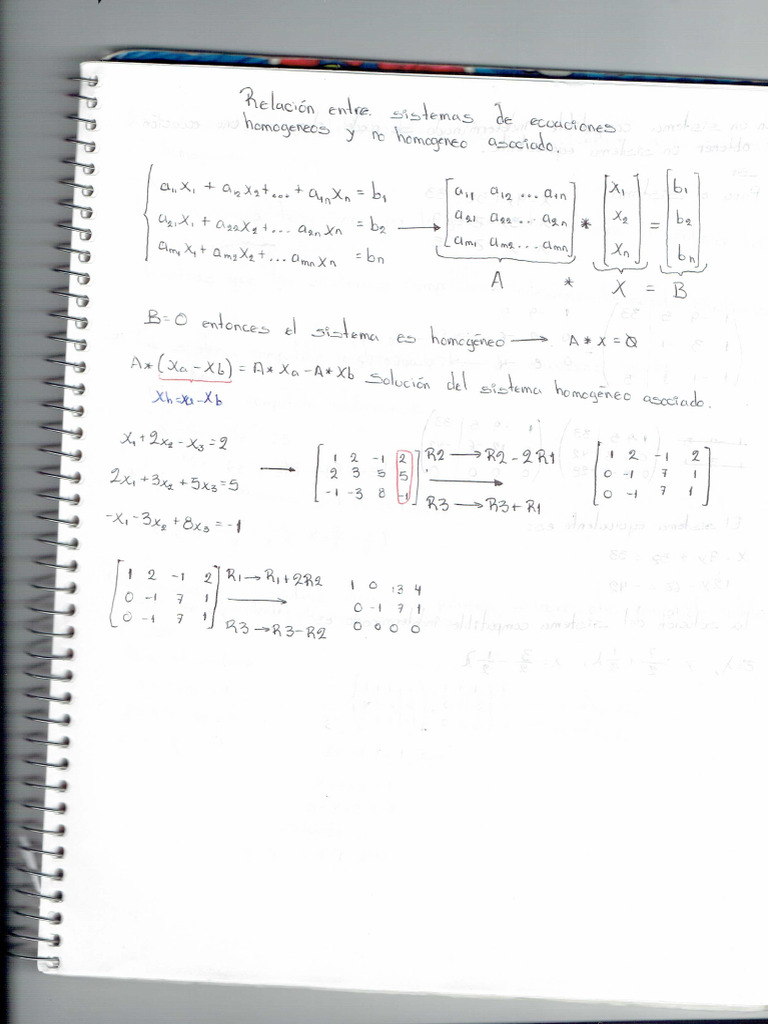 Relación entre sistemas de ecuaciones
homogeneos y no homogeneo asociado.
a11 x1 + a12 x2 + ... + a1n xn = b1
a21 x1 + a22 x2 + ... a2n xn = b2
am1 x1 + am2 x2 + ... amn xn = bn
→
[a11 a12 ... a1n] * [x1] = [b1]
[a21 a22 ... a2n] [x2] [b2]
[am1 am2 ... amn] [xn] [bn]
A * X = B
B=0 entonces el sistema es homogéneo → A * X = 0
A*(Xa - Xb) = A* Xa - A* Xb solución del sistema homogéneo asociado.
Xh = Xa - Xb
x1 + 2x2 - x3 = 2
2x1 + 3x2 + 5x3 = 5
-x1 - 3x2 + 8x3 = -1
→
1 2 -1 2
2 3 5 5
-1 -3 8 -1
R2 → R2 - 2R1
R3 → R3 + R1
1 2 -1 2
0 -1 7 1
0 -1 7 1
1 2 -1 2
0 -1 7 1
0 -1 7 1
R1 → R1 + 2R2
R3 → R3 - R2
1 0 13 4
0 -1 7 1
0 0 0 0